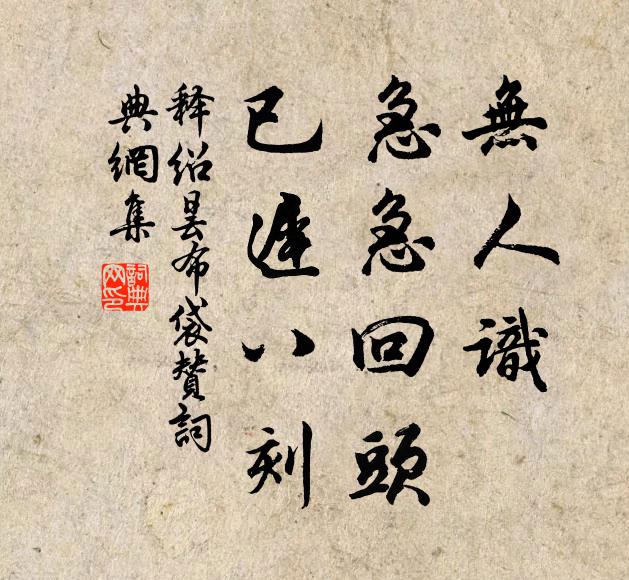 無人識
急急回頭
已遲八刻
释绍昙布袋賛詞
典網集
詞典网印